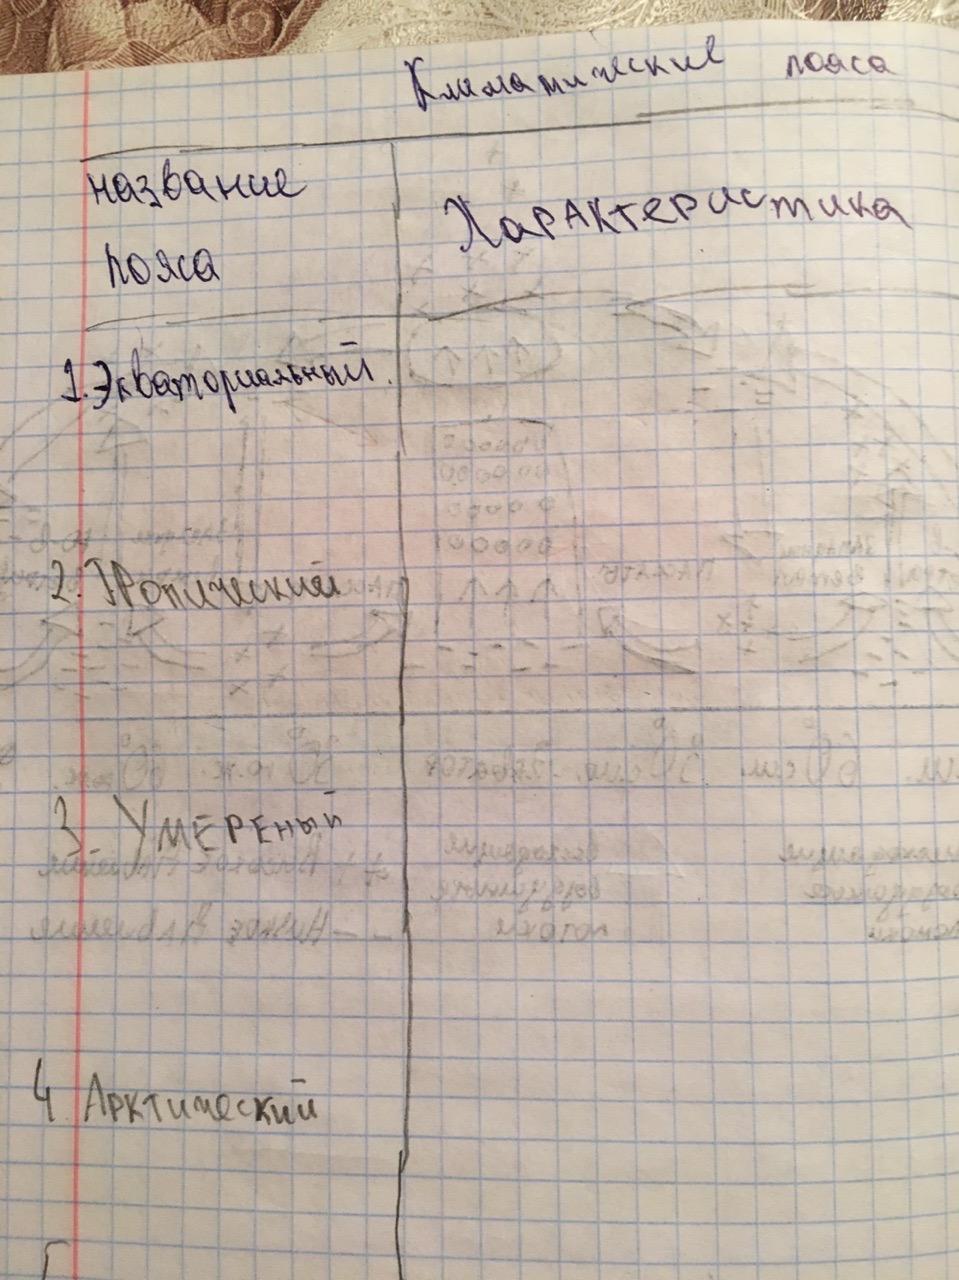 Климатические пояса
название
пояса
Характеристика
1. Экваториальный.
2. Тропический
3 Умереный
4 Арктический